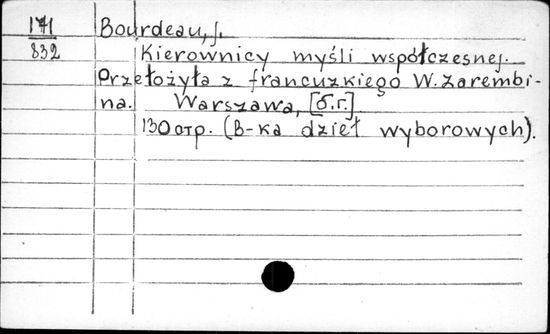 171 Bourdeau, J.
832 Kierownicy myśli współczesnej.
Przełożyła z francuzkiego W. Zarembi-
na. Warszawa, [б.г.]
130 стр. (B-ka dzieł wyborowych).